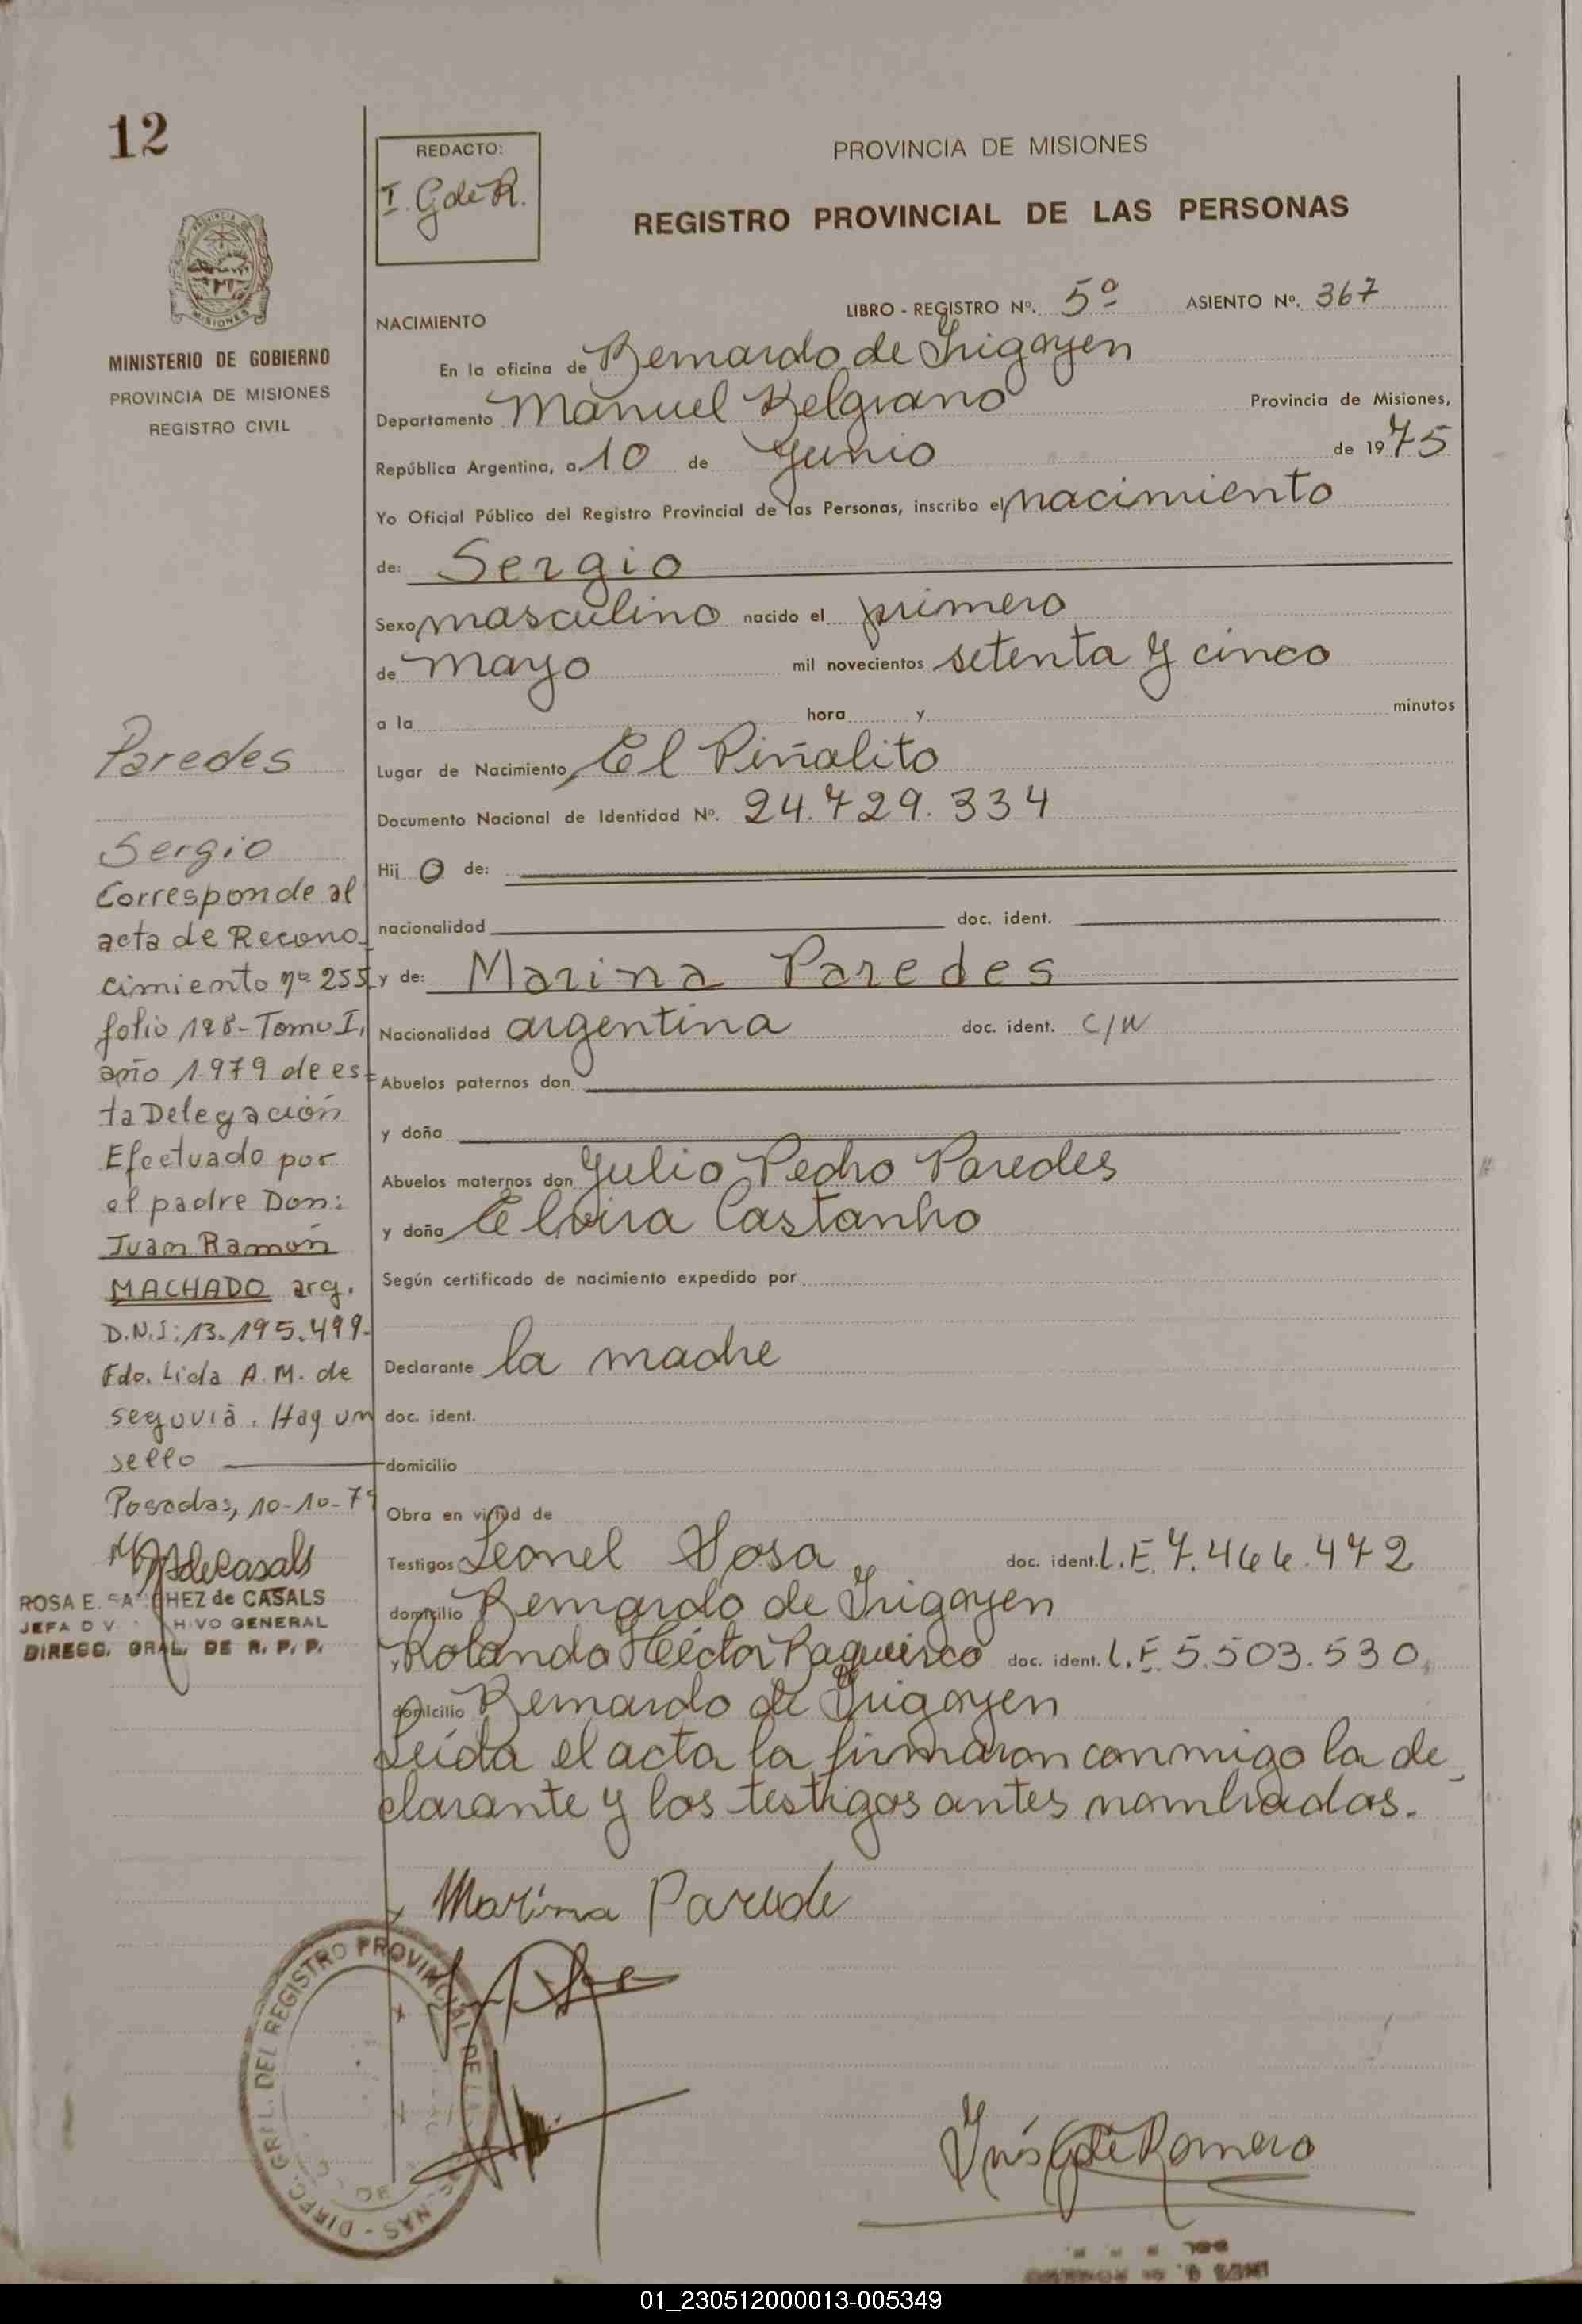 12
REDACTO:
I. G de R.
PROVINCIA DE MISIONES
REGISTRO PROVINCIAL DE LAS PERSONAS
MISIONES
MINISTERIO DE GOBIERNO
PROVINCIA DE MISIONES
REGISTRO CIVIL
NACIMIENTO
LIBRO - REGISTRO Nº. 5º ASIENTO Nº. 367
En la oficina de Bernardo de Irigoyen
Departamento Manuel Belgrano Provincia de Misiones,
República Argentina, a 10 de Junio de 1975
Yo Oficial Público del Registro Provincial de las Personas, inscribo el nacimiento
de: Sergio
Sexo masculino nacido el primero
de mayo mil novecientos setenta y cinco
a la hora y minutos
Lugar de Nacimiento El Piñalito
Documento Nacional de Identidad Nº. 24.729.334
Hij o de:
nacionalidad doc. ident.
y de: Marina Paredes
Nacionalidad argentina doc. ident. C/N
Abuelos paternos don
y doña
Abuelos maternos don Julio Pedro Paredes
y doña Elvira Castanho
Según certificado de nacimiento expedido por
Declarante la madre
doc. ident.
domicilio
Obra en virtud de
Testigos Leonel Sosa doc. ident. L.E 7.466.472
domicilio Bernardo de Irigoyen
y Rolando Héctor doc. ident. L.E. 5.503.530
domicilio Bernardo de Irigoyen
Leída el acta la firmaron conmigo la de_
clarante y los testigos antes nombrados.
Marina Parede
Inés G de Romero
Paredes
Sergio
Corresponde al
acta de Recono_
cimiento nº 255
folio 128 - Tomo I,
año 1979 de es=
ta Delegación
Efectuado por
el padre Don:
Juan Ramón
MACHADO arg.
D.N.I: 13.195.499-
Fdo. Lida A. M. de
segovia. Hay un
sello
Posadas, 10-10-79
ROSA E. SANCHEZ de CASALS
JEFA DIV. ARCHIVO GENERAL
DIRECC. GRAL. DE R. P. P.
DIREC. GRAL. DEL REGISTRO PROVINCIAL DE LAS
01_230512000013-005349